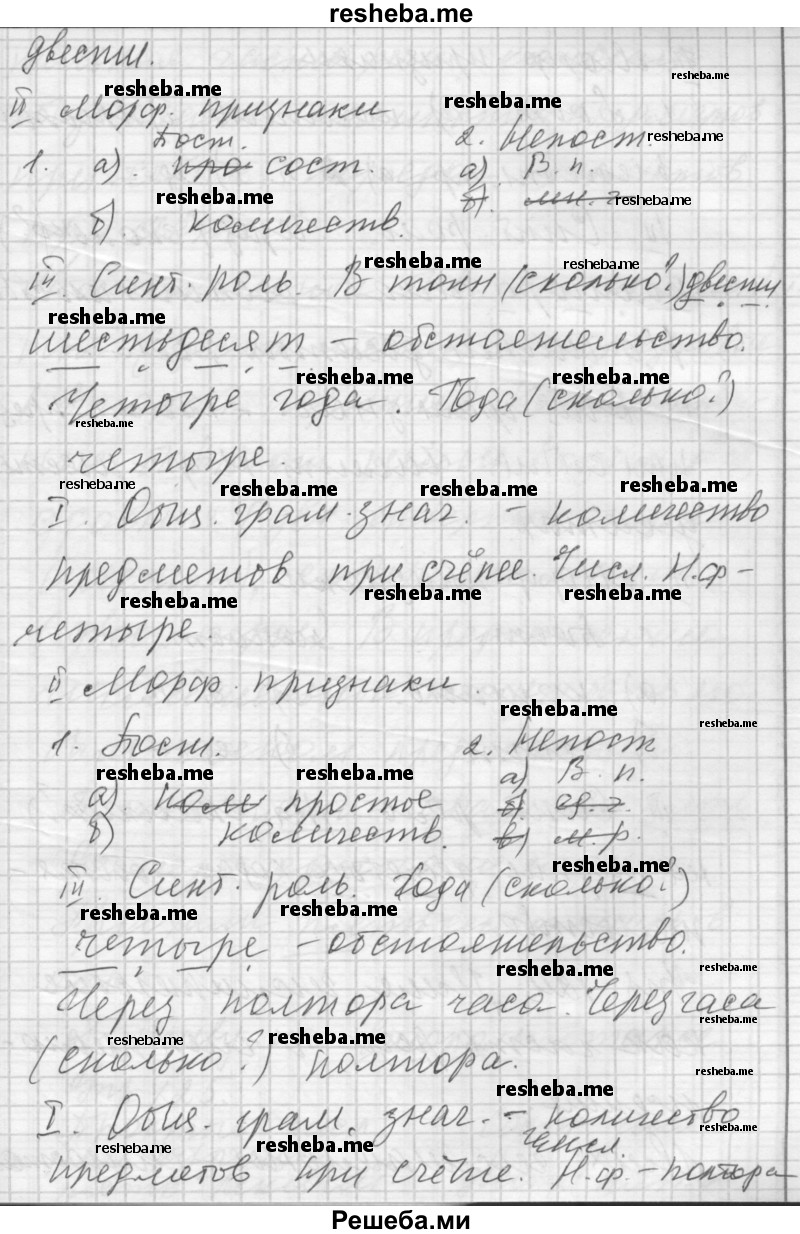 resheba.me
двести.
II. Морф. признаки
1. Пост. 2. Непост.
а). про сост. а) В. п.
б) количеств. б). мн. ч.
III. Синт. роль. В тонн (сколько?) двести
шестьдесят – обстоятельство.
Четыре года. Года (сколько?)
четыре.
I. Общ. грам. знач. – количество
предметов при счёте. Числ. Н.ф –
четыре.
II Морф. признаки.
1. Пост. 2. Непост
а). коли простое а) В. п.
б) количеств. б) ед. ч.
в) м. р.
III. Синт. роль. Года (сколько?)
четыре – обстоятельство.
Через полтора часа. Через часа
(сколько?) полтора.
I. Общ. грам. знач. – количество
предметов при счёте. Числ. Н.ф. – полтора
Решеба.ми